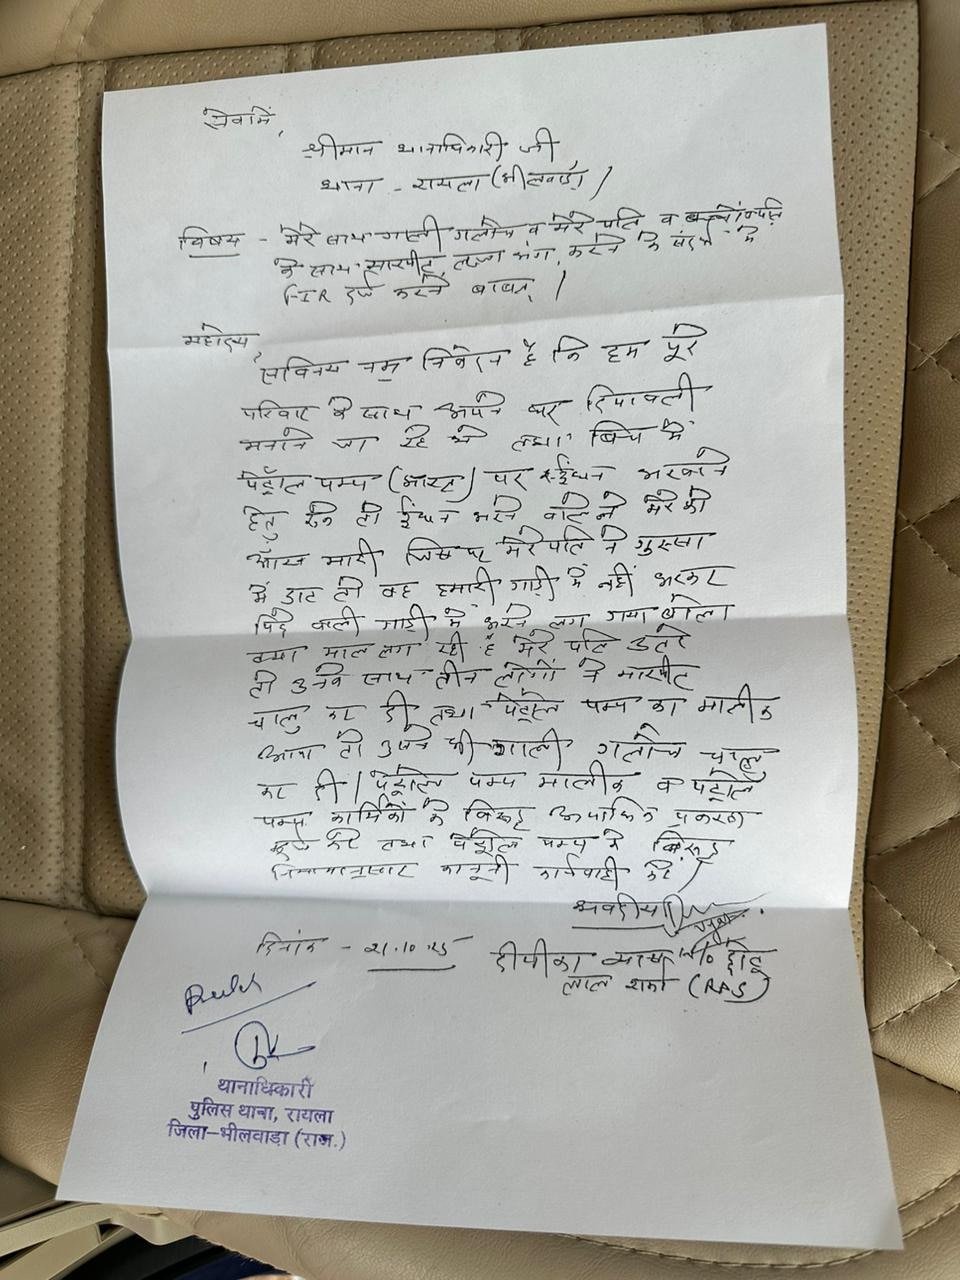 सेवामें,
श्रीमान थानाधिकारी जी
थाना - रायला (भीलवाड़ा)
विषय - मेरे साथ गाली गलौच व मेरे पति व बच्चों
के साथ मारपीट, लज्जा भंग, करने के संदर्भ में
FIR दर्ज करने बाबत् ।
महोदय,
सविनय नम्र निवेदन है कि हम पूरे
परिवार के साथ अपने घर दिपावली
मनाने जा रहे थे तथा बिच में
पेट्रोल पम्प पर ईंधन भरवाने
हेतु रुके तो ईंधन भरने वाले ने मेरे को
आँख मारी जिस पर मेरे पति ने गुस्सा
में डाट तो वह हमारी गाड़ी में नहीं भरकर
पिछे वाली गाड़ी में भरने लग गया बोला
क्या माल लग रही है मेरे पति उतरे
तो उनके साथ तीन लोगों ने मारपीट
चालु कर दी तथा पेट्रोल पम्प का मालीक
आया तो उसने भी गाली गलौच चालू
कर दी। पेट्रोल पम्प मालीक व पेट्रोल
पम्प कार्मिकों के विरूद्ध प्रकरण
दर्ज करे तथा पेट्रोल पम्प के विरूद्ध
नियमानुसार कानूनी कार्यवाही करे।
भवदीय
दिनांक - 21.10.25
दीपीका व्यास W/o छोटू
लाल शर्मा (RAS)
थानाधिकारी
पुलिस थाना, रायला
जिला-भीलवाड़ा (राज.)